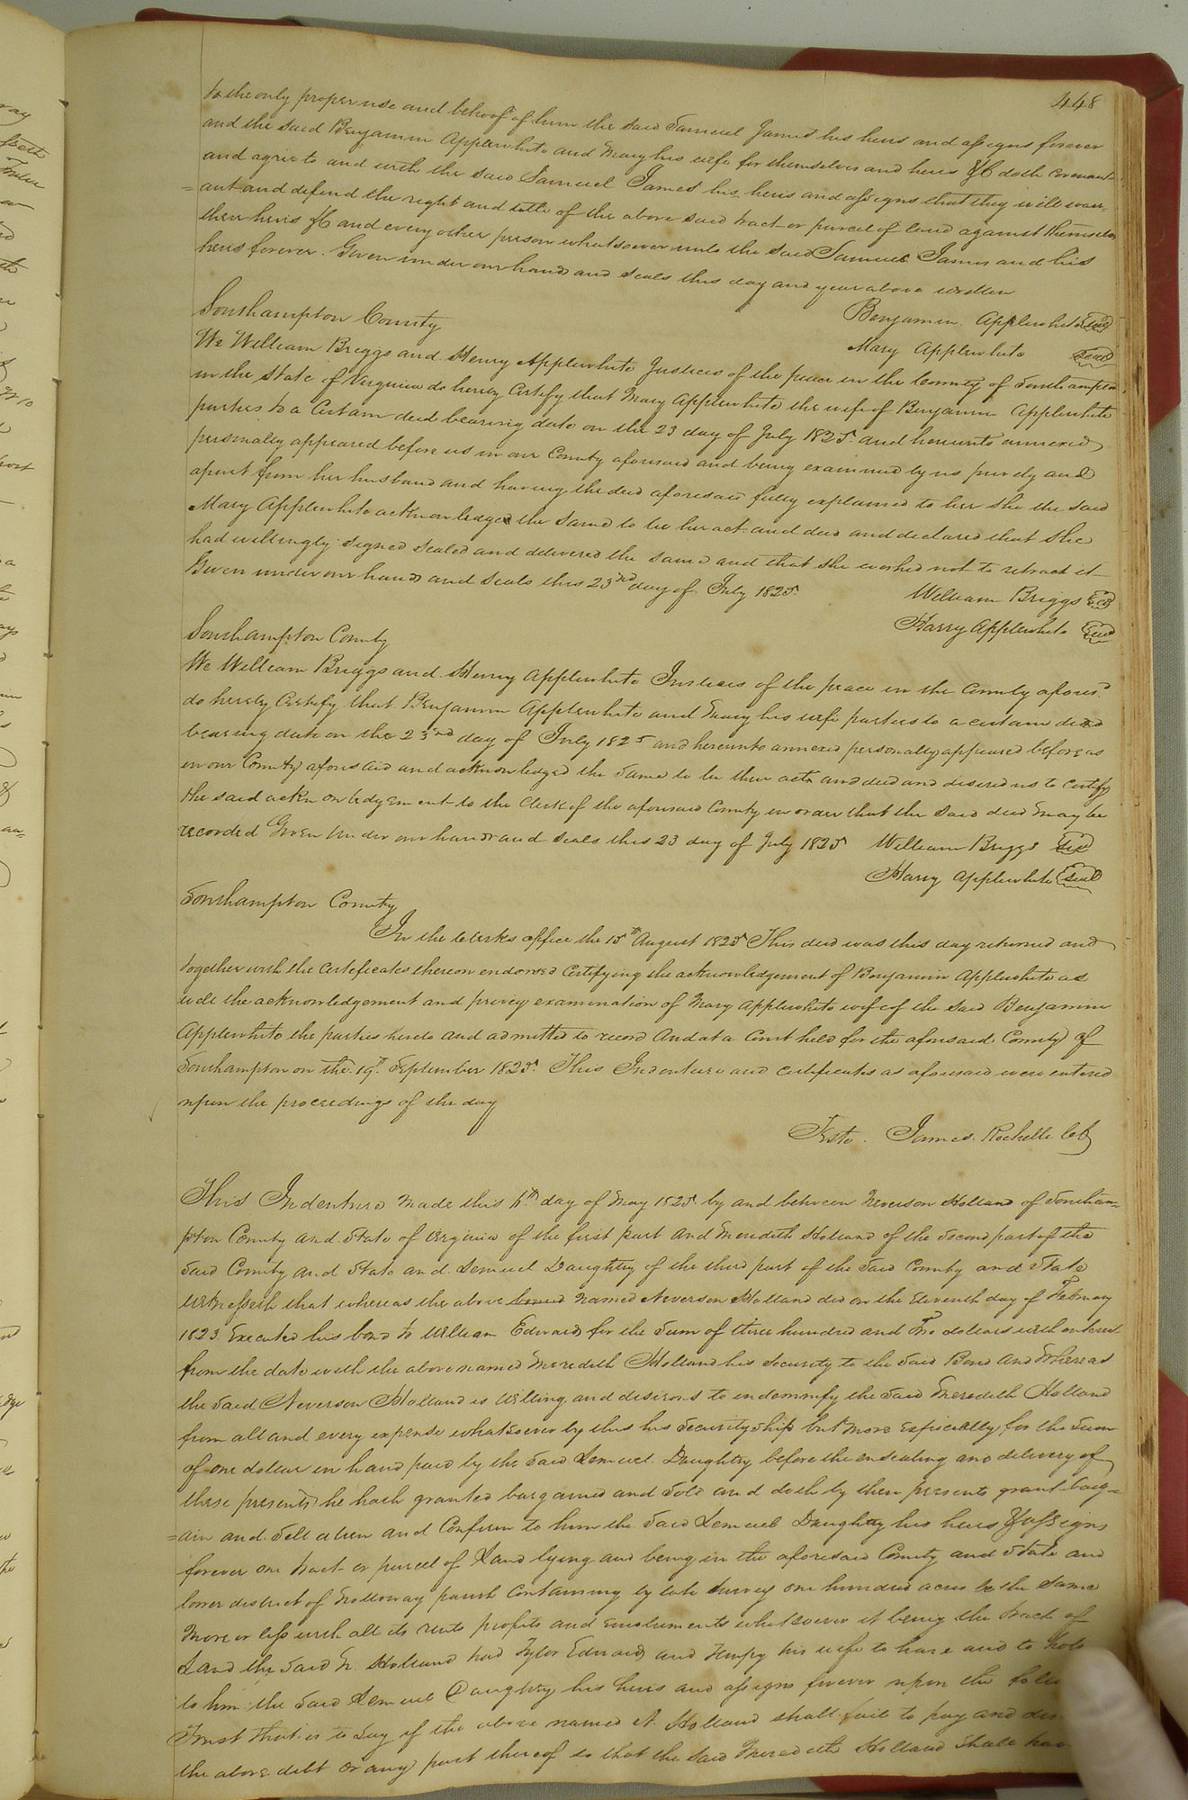 448
to the only proper use and behoof of him the said Samuel James his heirs and assigns forever
and the said Benjamin Applewhite and Mary his wife for themselves and heirs &C doth Covenant
and agree to and with the said Samuel James his heirs and assigns that they will warr-
=ant and defend the right and title of the above said tract or parcel of land against themselves
their heirs &C and every other person whatsoever unto the said Samuel James and his
heirs forever. Given under our hands and seals this day and year above written
Benjamin Applewhite Seal
Mary Applewhite Seal
Southampton County
We William Briggs and Henry Applewhite Justices of the peace in the County of Southampton
in the State of Virginia do hereby Certify that Mary Applewhite the wife of Benjamin Applewhite
parties to a Certain deed bearing date on the 23 day of July 1825 and hereunto annexed
personally appeared before us in our County aforesaid and being examined by us privily and
apart from her husband and having the deed aforesaid fully explained to her she the said
Mary Applewhite acknowledged the same to be her act and deed and declared that she
had willingly signed sealed and delivered the same and that she wished not to retract it
Given under our hands and seals this 23rd day of July 1825
William Briggs Seal
Harry Applewhite Seal
Southampton County
We William Briggs and Henry Applewhite Justices of the peace in the County afores.d
do hereby Certify that Benjamin Applewhite and Mary his wife parties to a certain deed
bearing date on the 23nd day of July 1825 and hereunto annexed personally appeared before us
in our County aforesaid and acknowledged the same to be their acts and deed and desired us to Certify
the said acknowledgement to the Clerk of the aforesaid County in order that the said deed may be
recorded Given under our hands and seals this 23 day of July 1825 William Briggs Seal
Harry Applewhite Seal
Southampton County
In the Clerks office the 15th August 1825 This deed was this day returned and
together with the Certificates thereon endorsed Certifying the acknowledgement of Benjamin Applewhite as
well the acknowledgement and privey examination of Mary Applewhite wife of the said Benjamin
Applewhite the parties hereto and admitted to record And at a Court held for the aforesaid County of
Southampton on the 19th September 1825. This Indenture and certificates as aforesaid were entered
upon the proceedings of the day
Teste. James Rochelle
This Indenture made this day of May 1825 by and between Neverson Holland of Southam-
pton County and State of Virginia of the first part and Meredith Holland of the Second part of the
Said County and State and Lemuel Daughtry of the third part of the Said County and State
Witnesseth that whereas the above named Neverson Holland did on the Eleventh day of February
1823 Executed his bond to William Edwards for the Sum of three hundred and Two dollars with interest
from the date with the above named Meredith Holland his Security to the Said Bond And Whereas
the Said Neverson Holland is Willing and desirous to indemnify the Said Meredith Holland
from all and every expense whatsoever by this his Security ship but more especially for the Sum
of one dollar in hand paid by the Said Lemuel Daughtry before the ensealing and delivery of
these presents he hath granted bargained and Sold and doth by these presents grant barg=
=ain and Sell alien and Confirm to him the Said Lemuel Daughtry his heirs & assigns
forever one tract or parcel of Land lying and being in the aforesaid County and State and
lower district of Nottoway parish Containing by late Survey one hundred acres be the Same
More or less with all its rents profits and emoluments whatsoever it being the tract of
Land the Said N. Holland had Edwards and his wife to have and to hold
to him the Said Lemuel Daughtry his heirs and assigns forever upon the
Trust that is to Say if the above named N. Holland shall fail to pay and
the above debt or any part thereof so that the Said Meredith Holland Shall